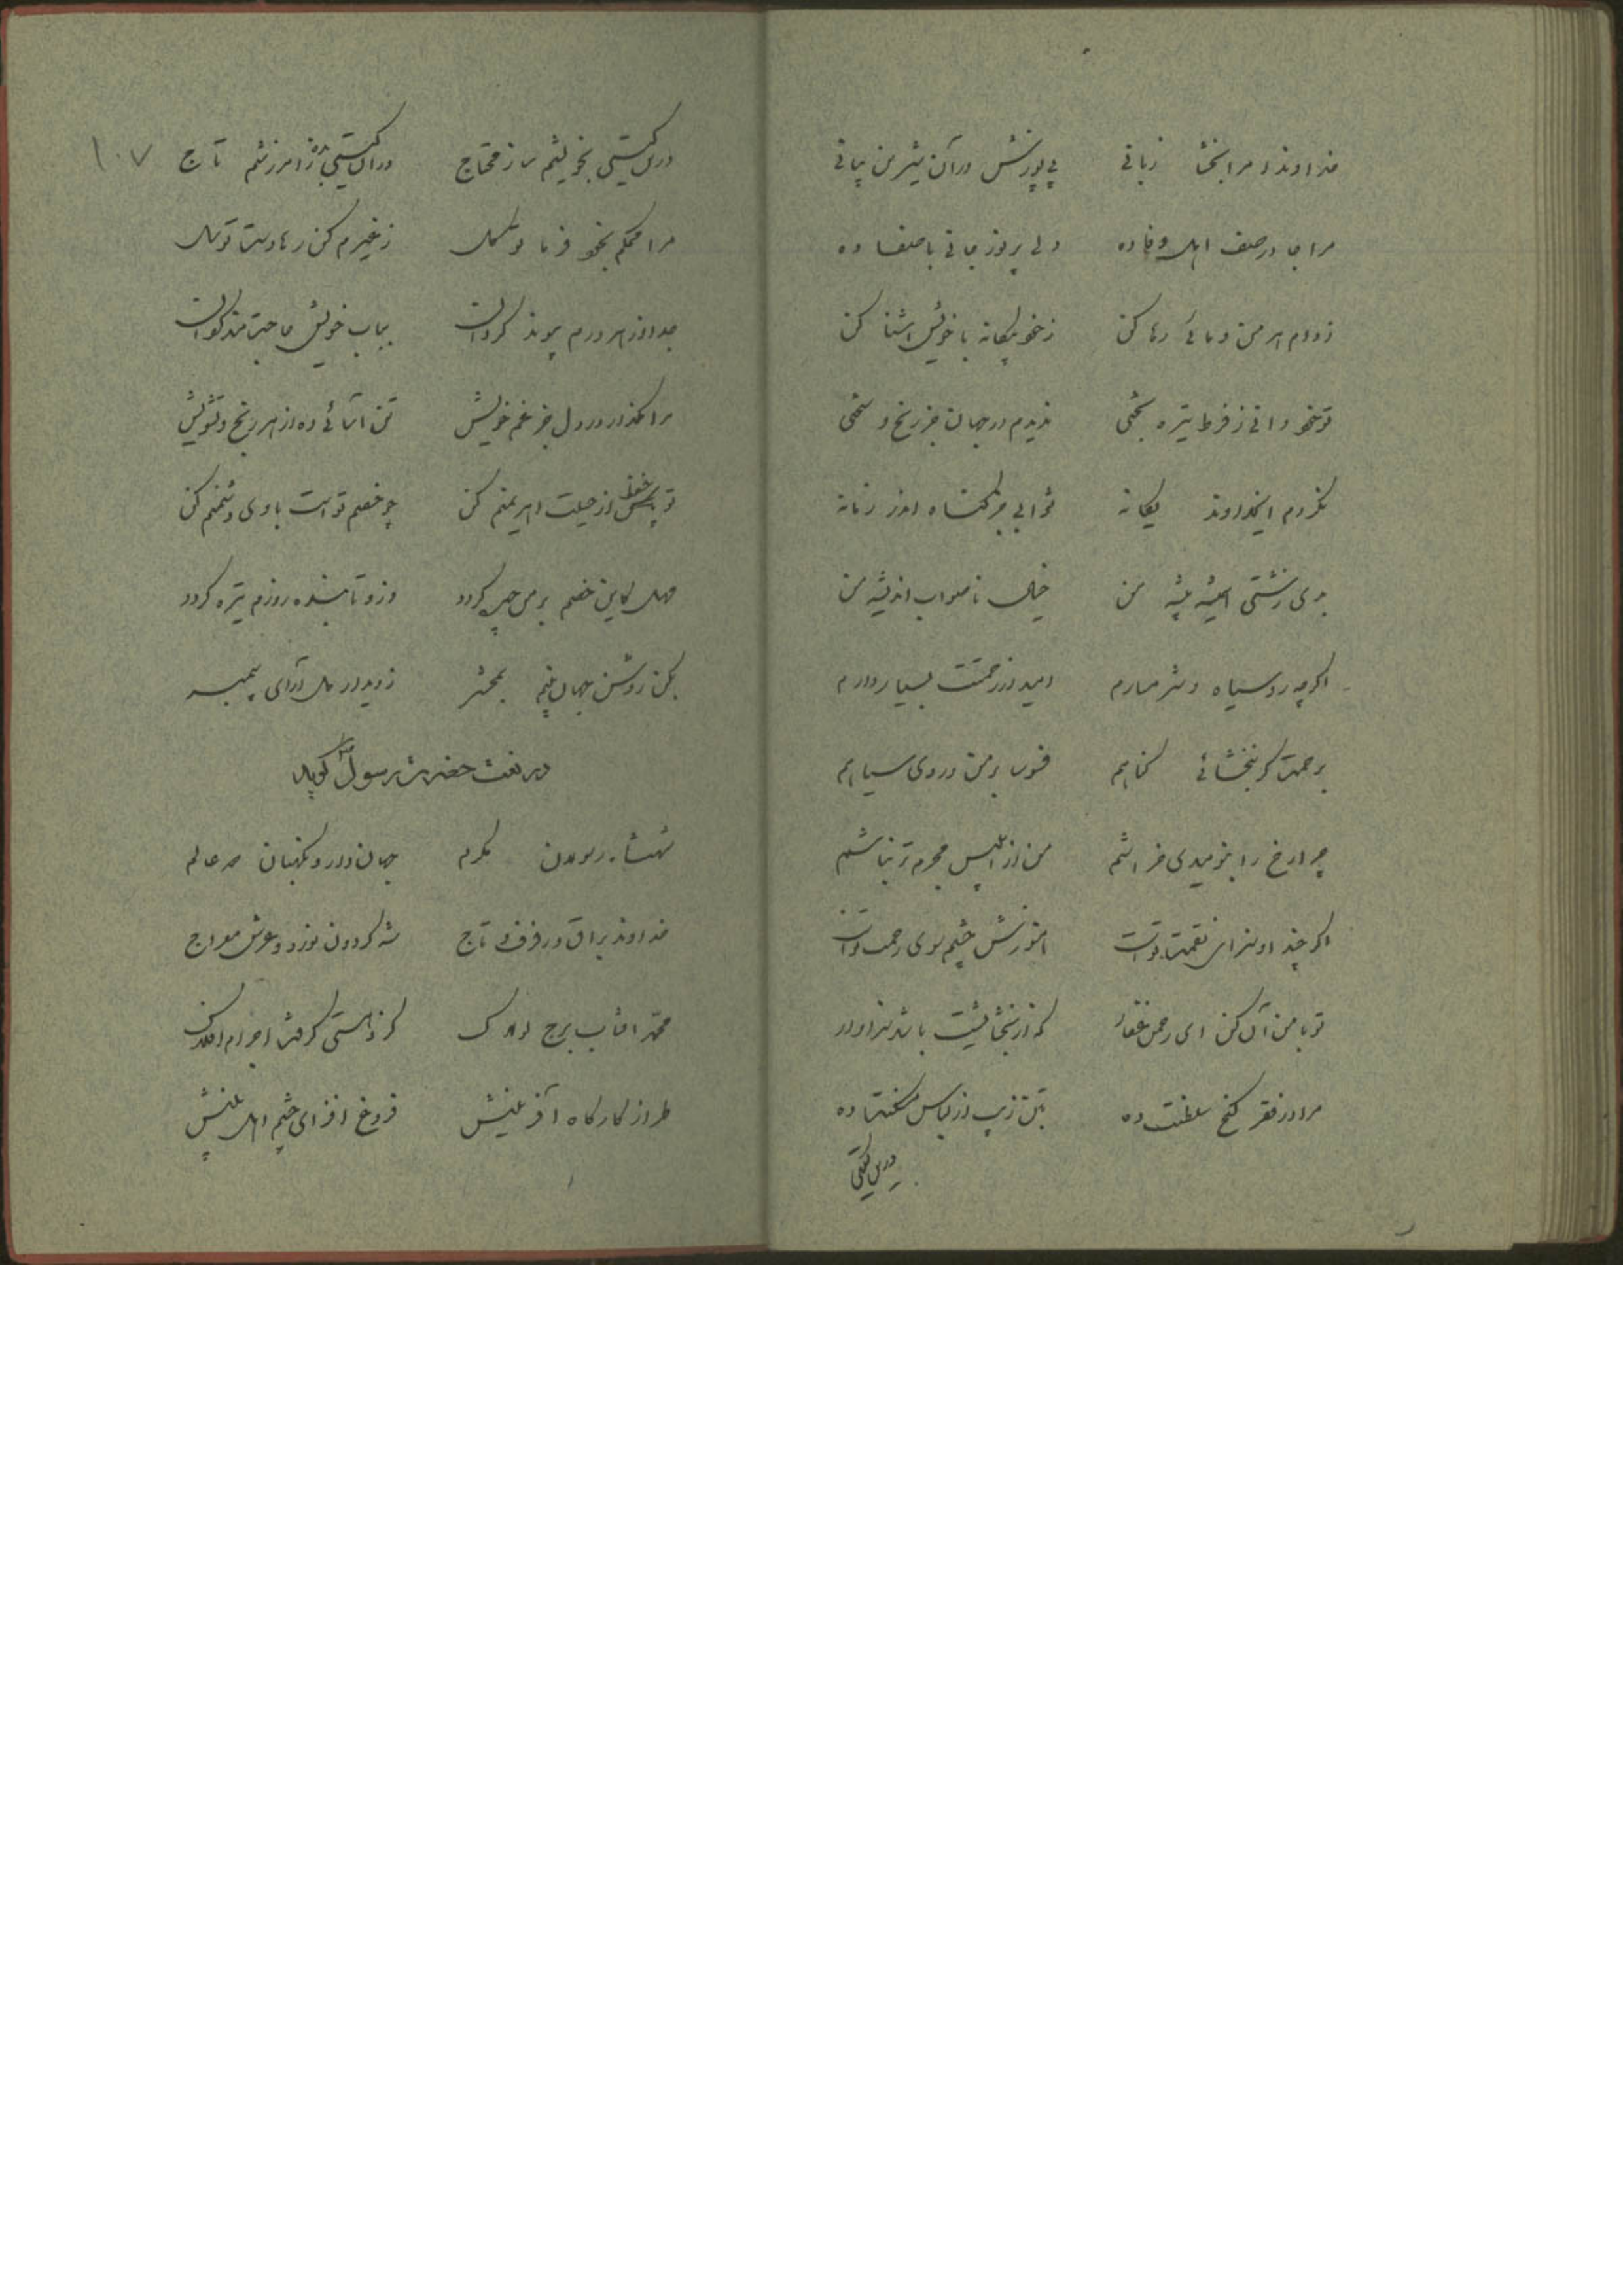 خداوندا مرا بخشا زبانی پی پوزش در آن شیرین بیانی
مرا جا در صف اهل وفا ده دلی پر نوز جانی با صفا ده
ز دام اهرمن و مائی رها کن ز خود بیگانه با خویش اشنا کن
تو خود دانی ز فرط تیره بختی ندیدم در جهان جز رنج و سختی
نکردم ایخداوند یگانه ثوابی جز گناه اندر زمانه
بدی زشتی همیشه پیشه من خیال ناصواب اندیشه من
اگرچه رو سیاه و شرمسارم امید از رحمتت بسیار دارم
برحمت گر نبخشائی گناهم فسوس بر من و روی سیاهم
چرا رخ را بنومیدی خراشم من از ابلیس مجرم تر نباشم
اگر چند او سزای نقمت تو است هنوزش چشم سوی رحمت تو است
تو با من آن کن ای رحمن غفار که از بخشائیشت باشد سزاوار
مرا در فقر گنج سلطنت ده بتن زیب از لباس مسکنت ده
درین گیتی
۱۰۷
درین گیتی بخویشم ساز محتاج در ان گیتی بنه ز امرزشم تاج
مرا محکم بخود فرما توکل ز غیرم کن رها دست توسل
جدا از هر درم پیوند گردان بباب خویش حاجتمند گردان
مرا مگذار در دل جز غم خویش تن اسائی ده از هر رنج و تشویش
تو حفظ از حیلت اهریمنم کن چو خصم تو است با وی دشمنم کن
مهل کاین خصم بر من چیر گردد وز و تابنده روزم تیره گردد
بکن روشن جهان بینم بمحشر ز دیدار دل آرای پیمبر
در نعت حضرت رسول گوید
شهنشاه رسولان مکرم جهان دار و نگهبان دو عالم
خداوند براق و رفرف و تاج شه گردون نورد و عرش معراج
محمد افتاب برج لولاک کز و هستی گرفت اجرام افلاک
طراز کارگاه آفرینش فروغ افزای چشم اهل بینش